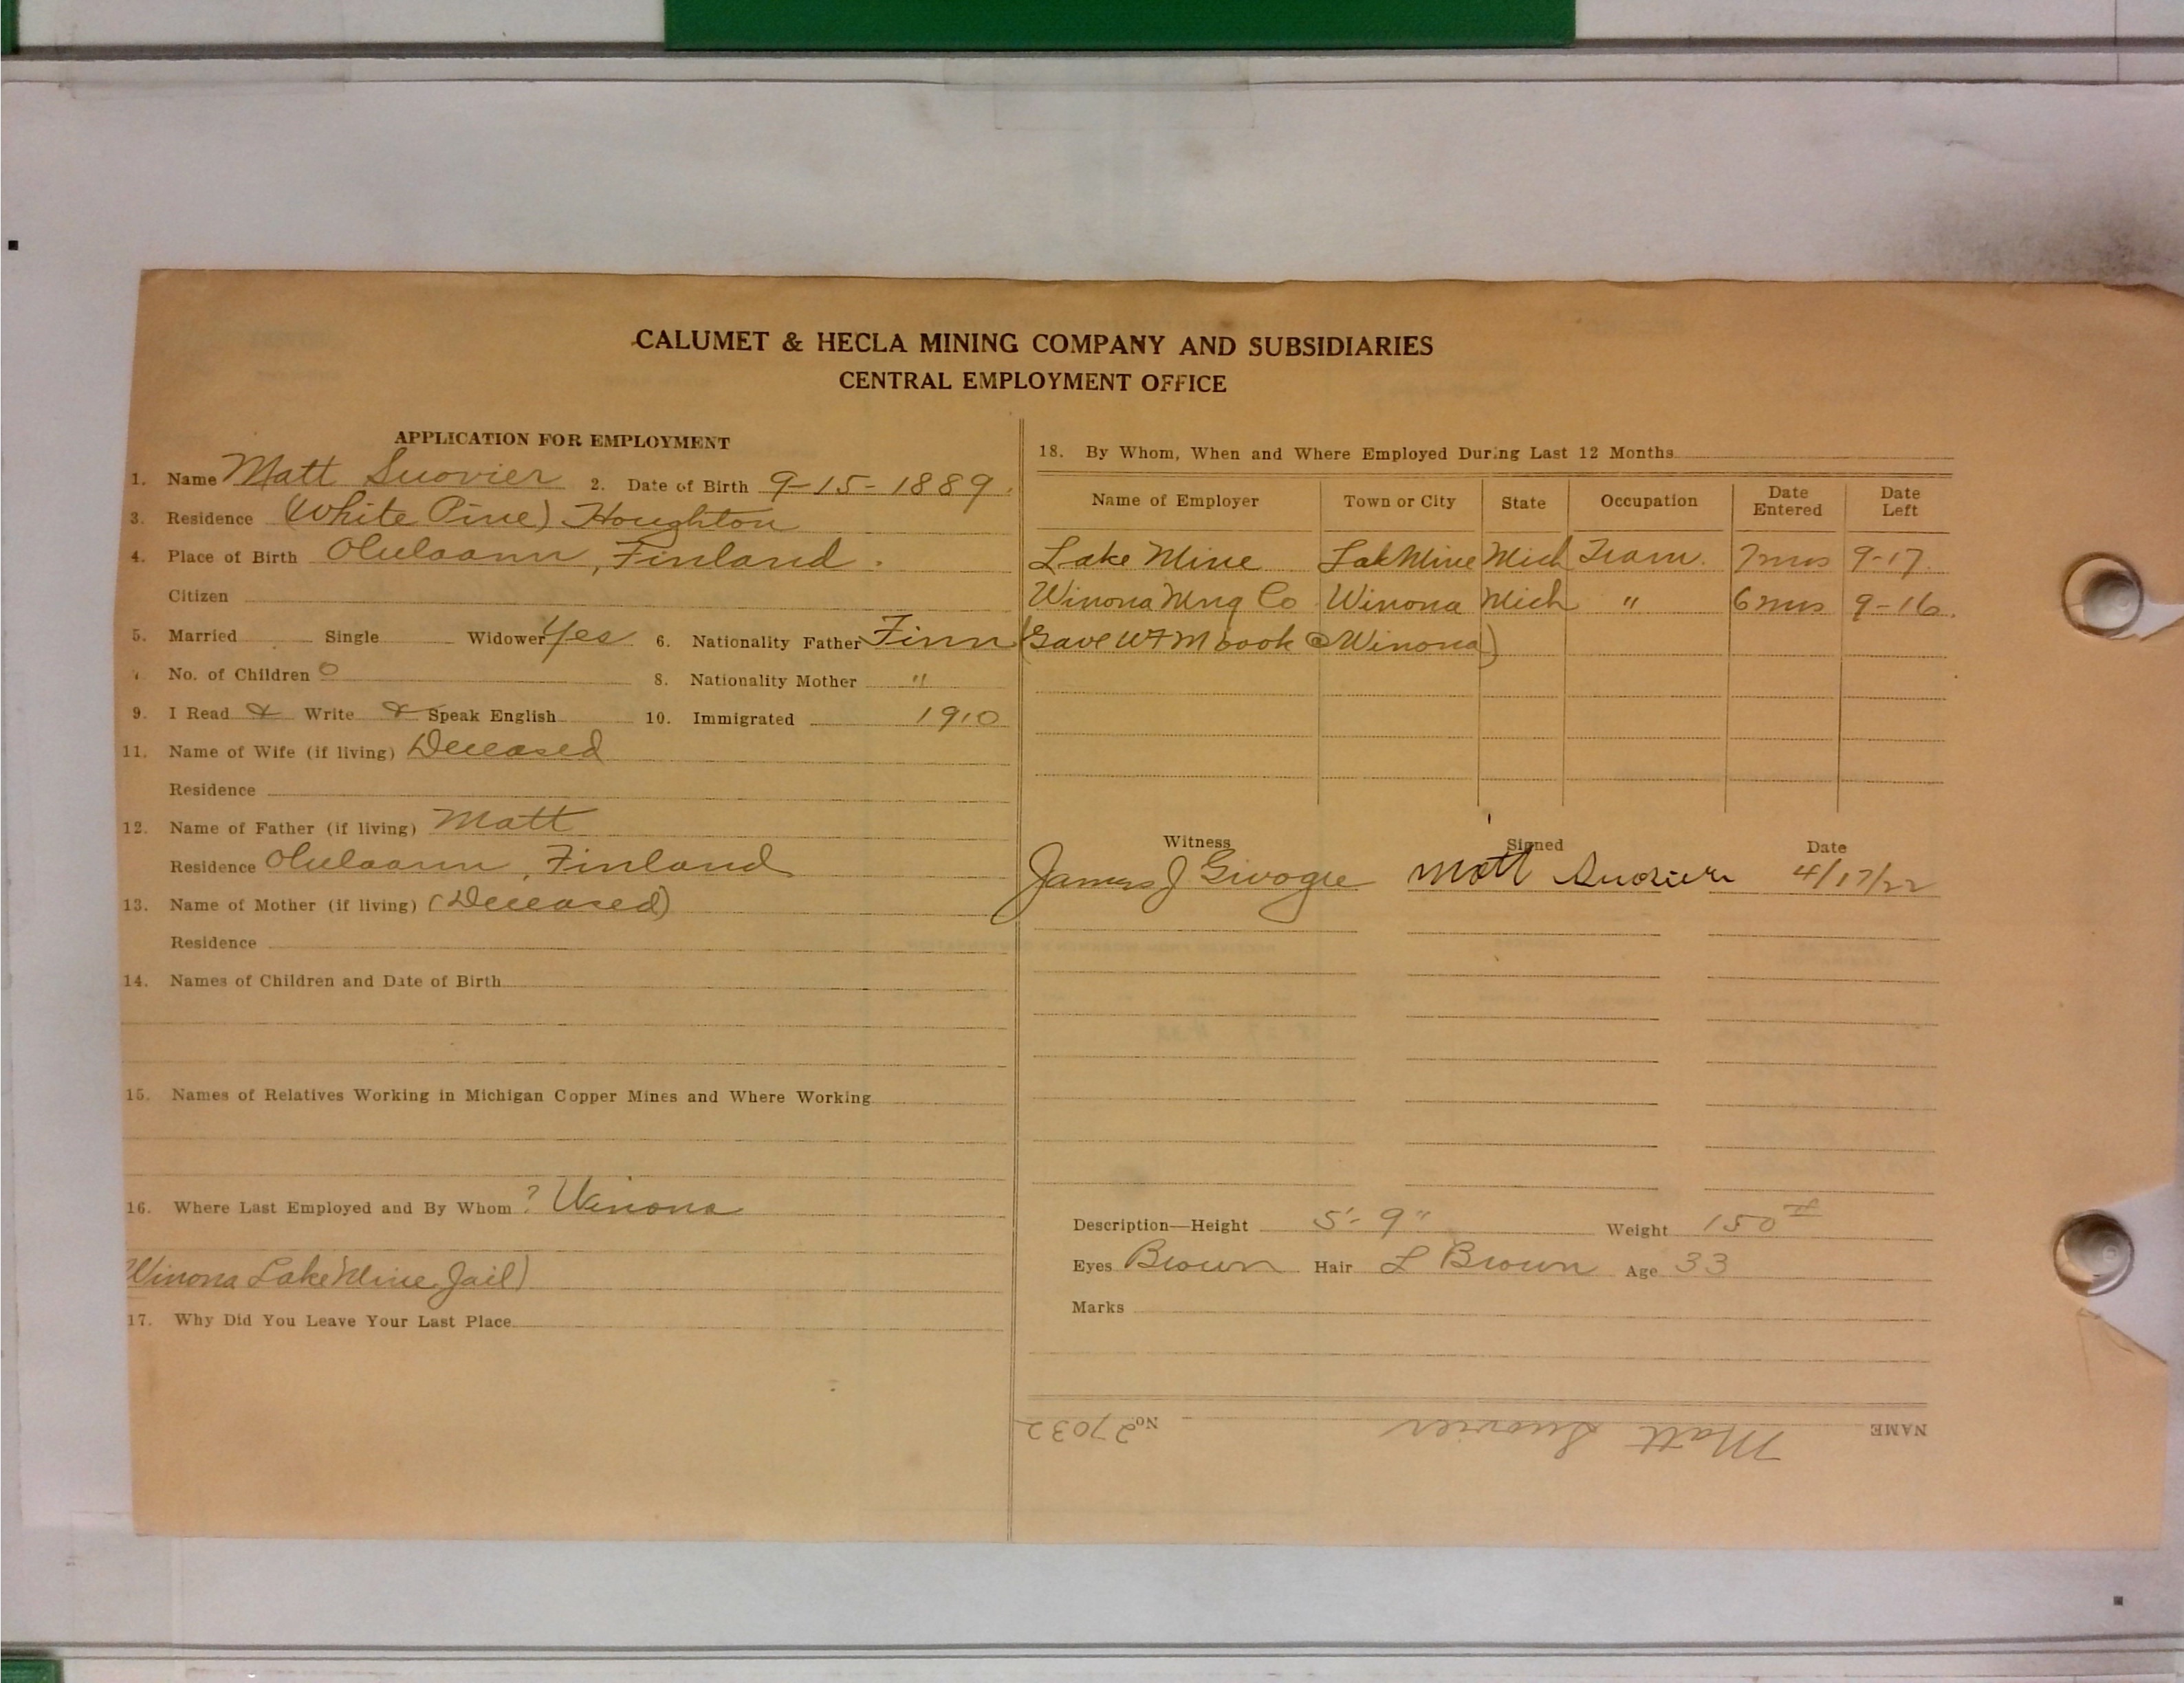 CALUMET & HECLA MINING COMPANY AND SUBSIDIARIES
CENTRAL EMPLOYMENT OFFICE
APPLICATION FOR EMPLOYMENT
1. Name Matt Suovier 2. Date of Birth 9-15-1889
3. Residence (White Pine) Houghton
4. Place of Birth Olulaann, Finland.
Citizen
5. Married Single Widower Yes 6. Nationality Father Finn
No. of Children 0 8. Nationality Mother "
9. I Read & Write & Speak English 10. Immigrated 1910
11. Name of Wife (if living) Deceased
Residence
12. Name of Father (if living) Matt
Residence Olulaann, Finland
13. Name of Mother (if living) (Deceased)
Residence
14. Names of Children and Date of Birth
15. Names of Relatives Working in Michigan Copper Mines and Where Working
16. Where Last Employed and By Whom ? Winona
Winona Lake Mine, Jail)
17. Why Did You Leave Your Last Place
18. By Whom, When and Where Employed During Last 12 Months
Name of Employer Town or City State Occupation Date Entered Date Left
Lake Mine Lak Mine Mich Tram. 7 mos 9-17
Winona Mng Co Winona Mich " 6 mos 9-16.
(Gave WFM book @ Winona)
Witness Signed Date
James J Matt Suovier 4/17/22
Description—Height 5'-9" Weight 150#
Eyes Brown Hair L Brown Age 33
Marks
NAME Matt Suovier No 27032